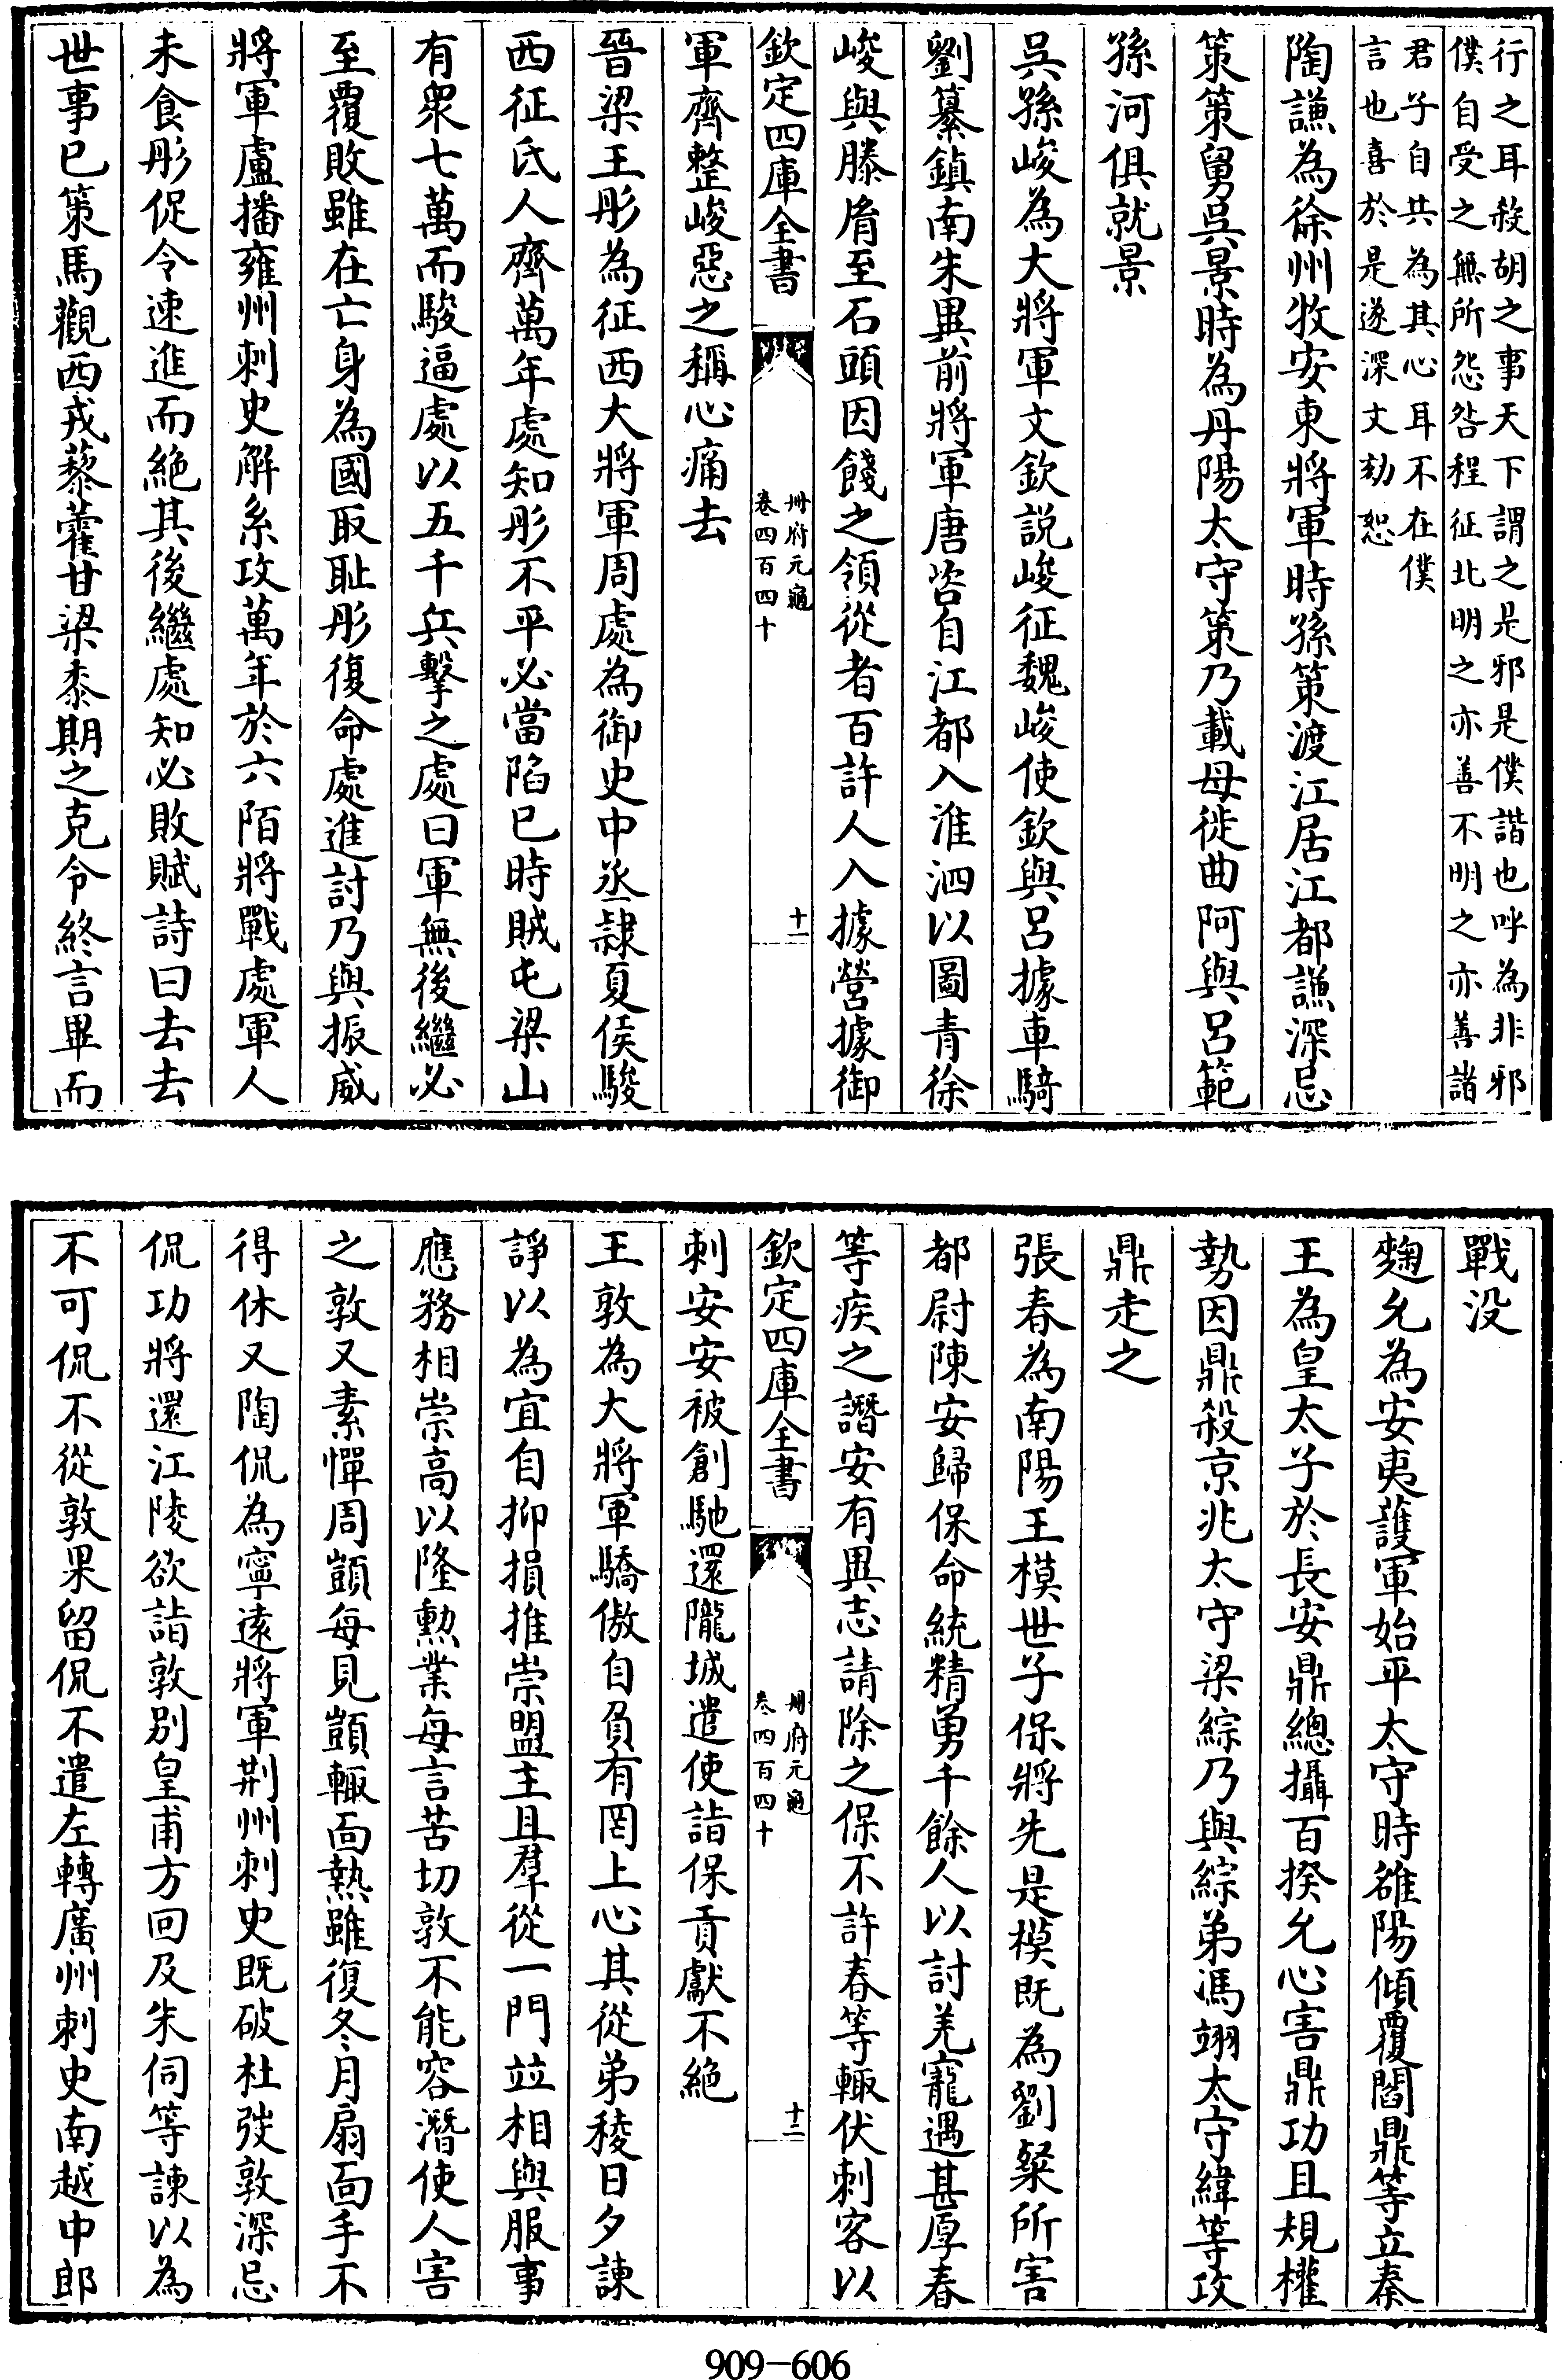 行之耳殺胡之事天下謂之是邪是僕諧也呼為非邪
僕自受之無所怨咎程征北明之亦善不明之亦善諸
君子自共為其心耳不在僕
言也喜於是遂深文劾恕
陶謙為徐州牧安東將軍時孫策渡江居江都謙深忌
策策舅吳景時為丹陽太守策乃載母徙曲阿與呂範
孫河俱就景
吳孫峻為大將軍文欽説峻征魏峻使欽與呂據車騎
劉纂鎮南朱異前將軍唐咨自江都入淮泗以圖青徐
峻與滕𦙍至石頭因餞之領從者百許人入據營據御
欽定四庫全書
冊府元龜
卷四百四十
十一
軍齊整峻惡之稱心痛去
晉梁王彤為征西大將軍周處為御史中丞隷夏侯駿
西征氐人齊萬年處知彤不平必當陷已時賊屯梁山
有衆七萬而駿逼處以五千兵擊之處曰軍無後繼必
至覆敗雖在亡身為國取耻彤復命處進討乃與振威
將軍盧播雍州刺史解系攻萬年於六陌將戰處軍人
未食彤促令速進而絶其後繼處知必敗賦詩曰去去
世事已策馬觀西戎藜藿甘梁黍期之克令終言畢而
戰没
麴允為安夷護軍始平太守時雒陽傾覆閻鼎等立秦
王為皇太子於長安鼎總攝百揆允心害鼎功且規權
勢因鼎殺京兆太守梁綜乃與綜弟馮翊太守緯等攻
鼎走之
張春為南陽王模世子保將先是模既為劉粲所害
都尉陳安歸保命統精勇千餘人以討羌寵遇甚厚春
等疾之譖安有異志請除之保不許春等輙伏刺客以
欽定四庫全書
冊府元龜
卷四百四十
十二
刺安安被創馳還隴城遣使詣保貢獻不絶
王敦為大將軍驕傲自負有罔上心其從弟稜日夕諫
諍以為宜自抑損推崇盟主且羣從一門竝相與服事
應務相崇高以隆勲業每言苦切敦不能容潛使人害
之敦又素憚周顗每見顗輙靣熱雖復冬月扇靣手不
得休又陶侃為寧遠將軍荆州刺史既破杜弢敦深忌
侃功將還江陵欲詣敦别皇甫方回及朱伺等諫以為
不可侃不從敦果留侃不遣左轉廣州刺史南越中郎
909-606